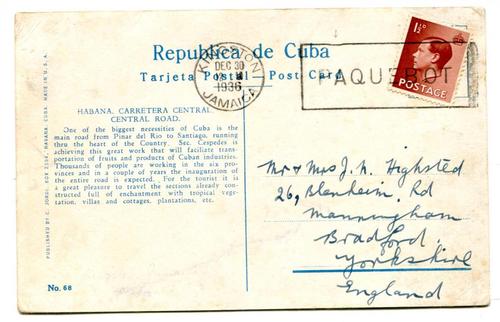 Republica de Cuba
Tarjeta Postal Post Card
KINGSTON
DEC 30
1936
JAMAICA
PAQUEBOT
1½D
POSTAGE
HABANA, CARRETERA CENTRAL
CENTRAL ROAD.
One of the biggest necessities of Cuba is the
main road from Pinar del Rio to Santiago, running
thru the heart of the Country. Sec. Cespedes is
achieving this great work that will faciliate trans-
portation of fruits and products of Cuban industries.
Thousands of people are working in the six pro-
vinces and in a couple of years the inauguration of
the entire road is expected. For the tourist it is
a great pleasure to travel the sections already con-
structed full of enchantment with tropical vege-
tation, villas and cottages, plantations, etc.
PUBLISHED BY C. JORDI, BOX 1254, HAVANA, CUBA. MADE IN U.S.A.
No. 68
Mr & Mrs J. N. Highsted
26, Blenheim Rd
Manningham
Bradford.
Yorkshire
England